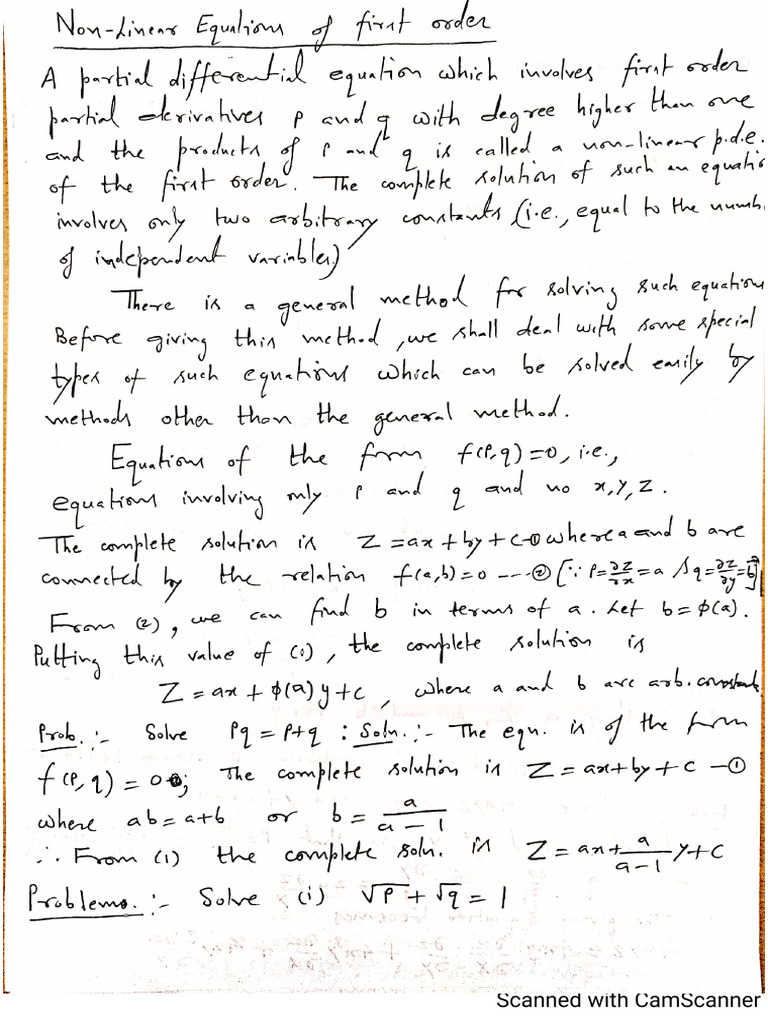 Non-Linear Equations of first order
A partial differential equation which involves first order
partial derivatives p and q with degree higher than one
and the products of p and q is called a non-linear p.d.e.
of the first order. The complete solution of such an equatio
involves only two arbitrary constants (i.e., equal to the numb
of independent variables)
There is a general method for solving such equations
Before giving this method, we shall deal with some special
types of such equations which can be solved easily by
methods other than the general method.
Equations of the form f(p,q)=0, i.e.,
equations involving only p and q and no x,y,z.
The complete solution is z=ax+by+c-① where a and b are
connected by the relation f(a,b)=0 ---② [∵ p=∂z/∂x=a & q=∂z/∂y=b]
From (2), we can find b in terms of a. Let b=φ(a).
Putting this value of (1), the complete solution is
z=ax+φ(a)y+c, where a and b are arb. constants
Prob. :- Solve pq=p+q : Soln. :- The eqn. is of the form
f(p,q)=0; The complete solution is z=ax+by+c -①
where ab=a+b or b=a/(a-1)
∴ From (1) the complete soln. is z=ax+a/(a-1) y+c
Problems. :- Solve (i) √p+√q=1
Scanned with CamScanner